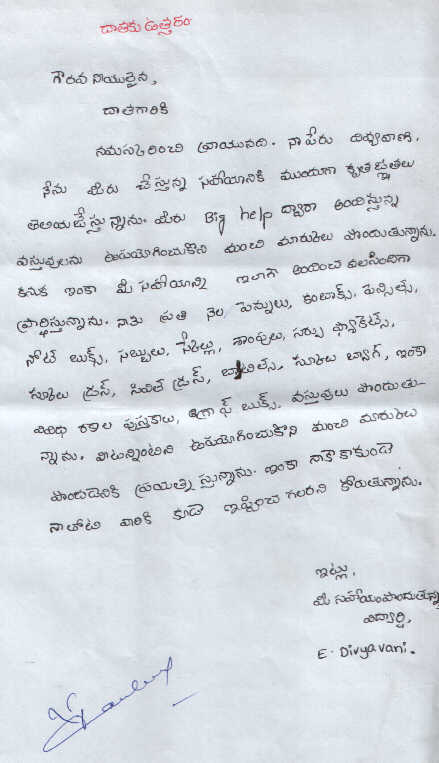 దాతకు ఉత్తరం
గౌరవనీయులైన,
దాతగారికి
నమస్కరించి వ్రాయునది. నా పేరు దివ్యవాణి.
నేను మీరు చేస్తున్న సహాయానికి ముందుగా కృతజ్ఞతలు
తెలియచేస్తున్నాను. మీరు Big help ద్వారా అందిస్తున్న
వస్తువులను ఉపయోగించుకొని మంచి మార్కులు పొందుతున్నాను.
కనుక ఇంకా మీ సహాయాన్ని ఇలాగే అందించ వలసిందిగా
ప్రార్థిస్తున్నాను. నాకు ప్రతి నెల పెన్నులు, కంబాక్స్, పెన్సిల్స్,
నోట్ బుక్స్, సబ్బులు, స్కేల్లు, శాంపులు, సర్ఫు ప్యాకెట్స్,
స్కూలు డ్రస్, సివిల్ డ్రస్, బ్యాటిల్స్, స్కూలు బ్యాగ్, ఇంకా
వివిధ రకాల పుస్తకాలు, గ్రాఫ్ బుక్స్, వస్తువులు పొందుతు-
న్నాను. వాటన్నింటిని ఉపయోగించుకొని మంచి మార్కులు
పొందడానికి ప్రయత్నిస్తున్నాను. ఇంకా నాకే కాకుండా
నాతోటి వారికి కూడా ఇప్పించ గలరని కోరుతున్నాను.
ఇట్లు,
మీ సహాయంపొందుతున్న
విద్యార్థి,
E. Divyavani.